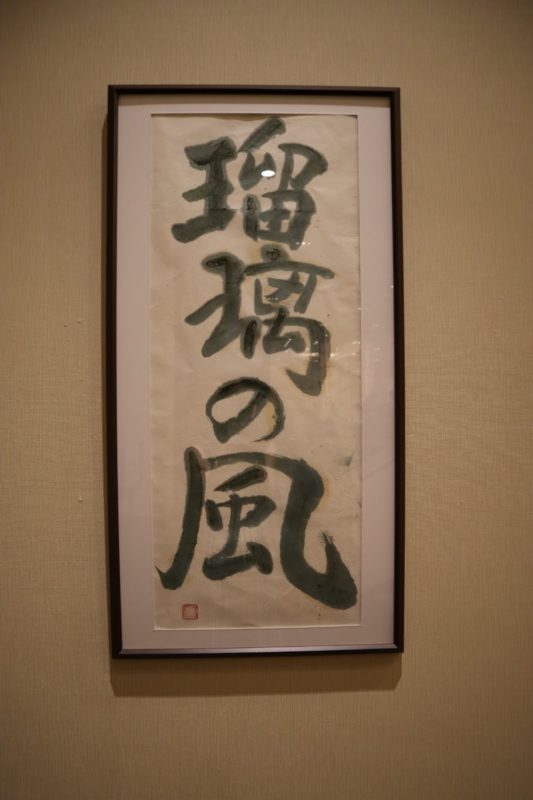 瑠璃の風